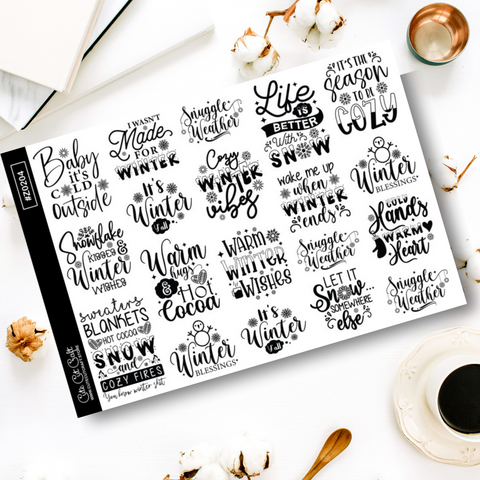 #Z0204
Baby
it's
COLD
Outside
I WASN'T
Made
FOR
WINTER
Snuggle
Weather
Life
IS
BETTER
With
SNOW
IT'S THE
Season
TO BE
COZY
Snowflake
KISSES &
Winter
WISHES
It's
Winter
Y'all
Cozy
WINTER
vibes
wake me up
when
WINTER
ends
Winter
BLESSINGS
Warm
hugs
& HOT
Cocoa
WARM
WINTER
WISHES
Snuggle
Weather
COLD
Hands
WARM
Heart
sweaters
BLANKETS
HOT COCOA
SNOW
and
COZY FIRES
You know winter shit
Winter
BLESSINGS
It's
Winter
Y'all
LET IT
Snow
SOMEWHERE
else
Snuggle
Weather